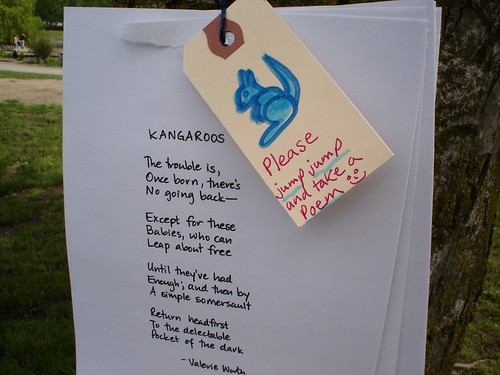 KANGAROOS
The trouble is,
Once born, there's
No going back—
Except for these
Babies, who can
Leap about free
Until they've had
Enough; and then by
A simple somersault
Return headfirst
To the delectable
Pocket of the dark
-Valerie Worth
Please
jump jump
and take a
Poem